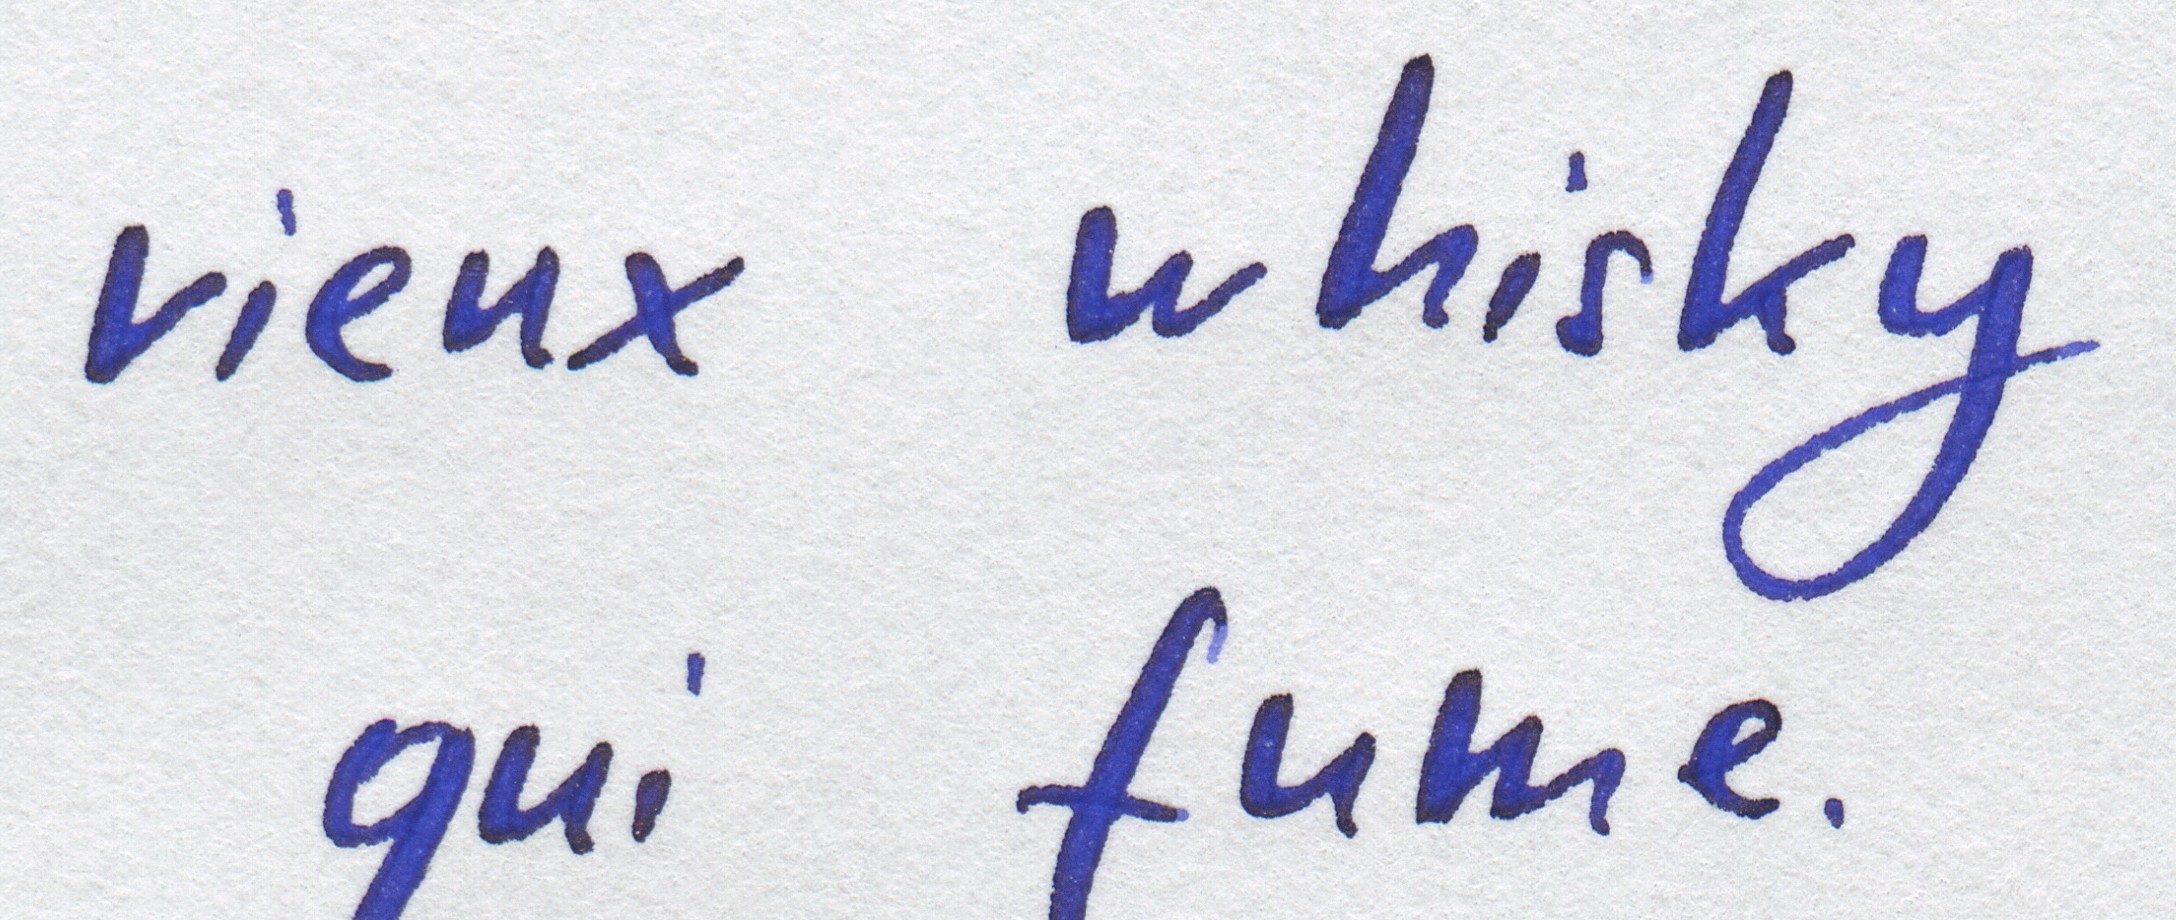 vieux whisky
qui fume.